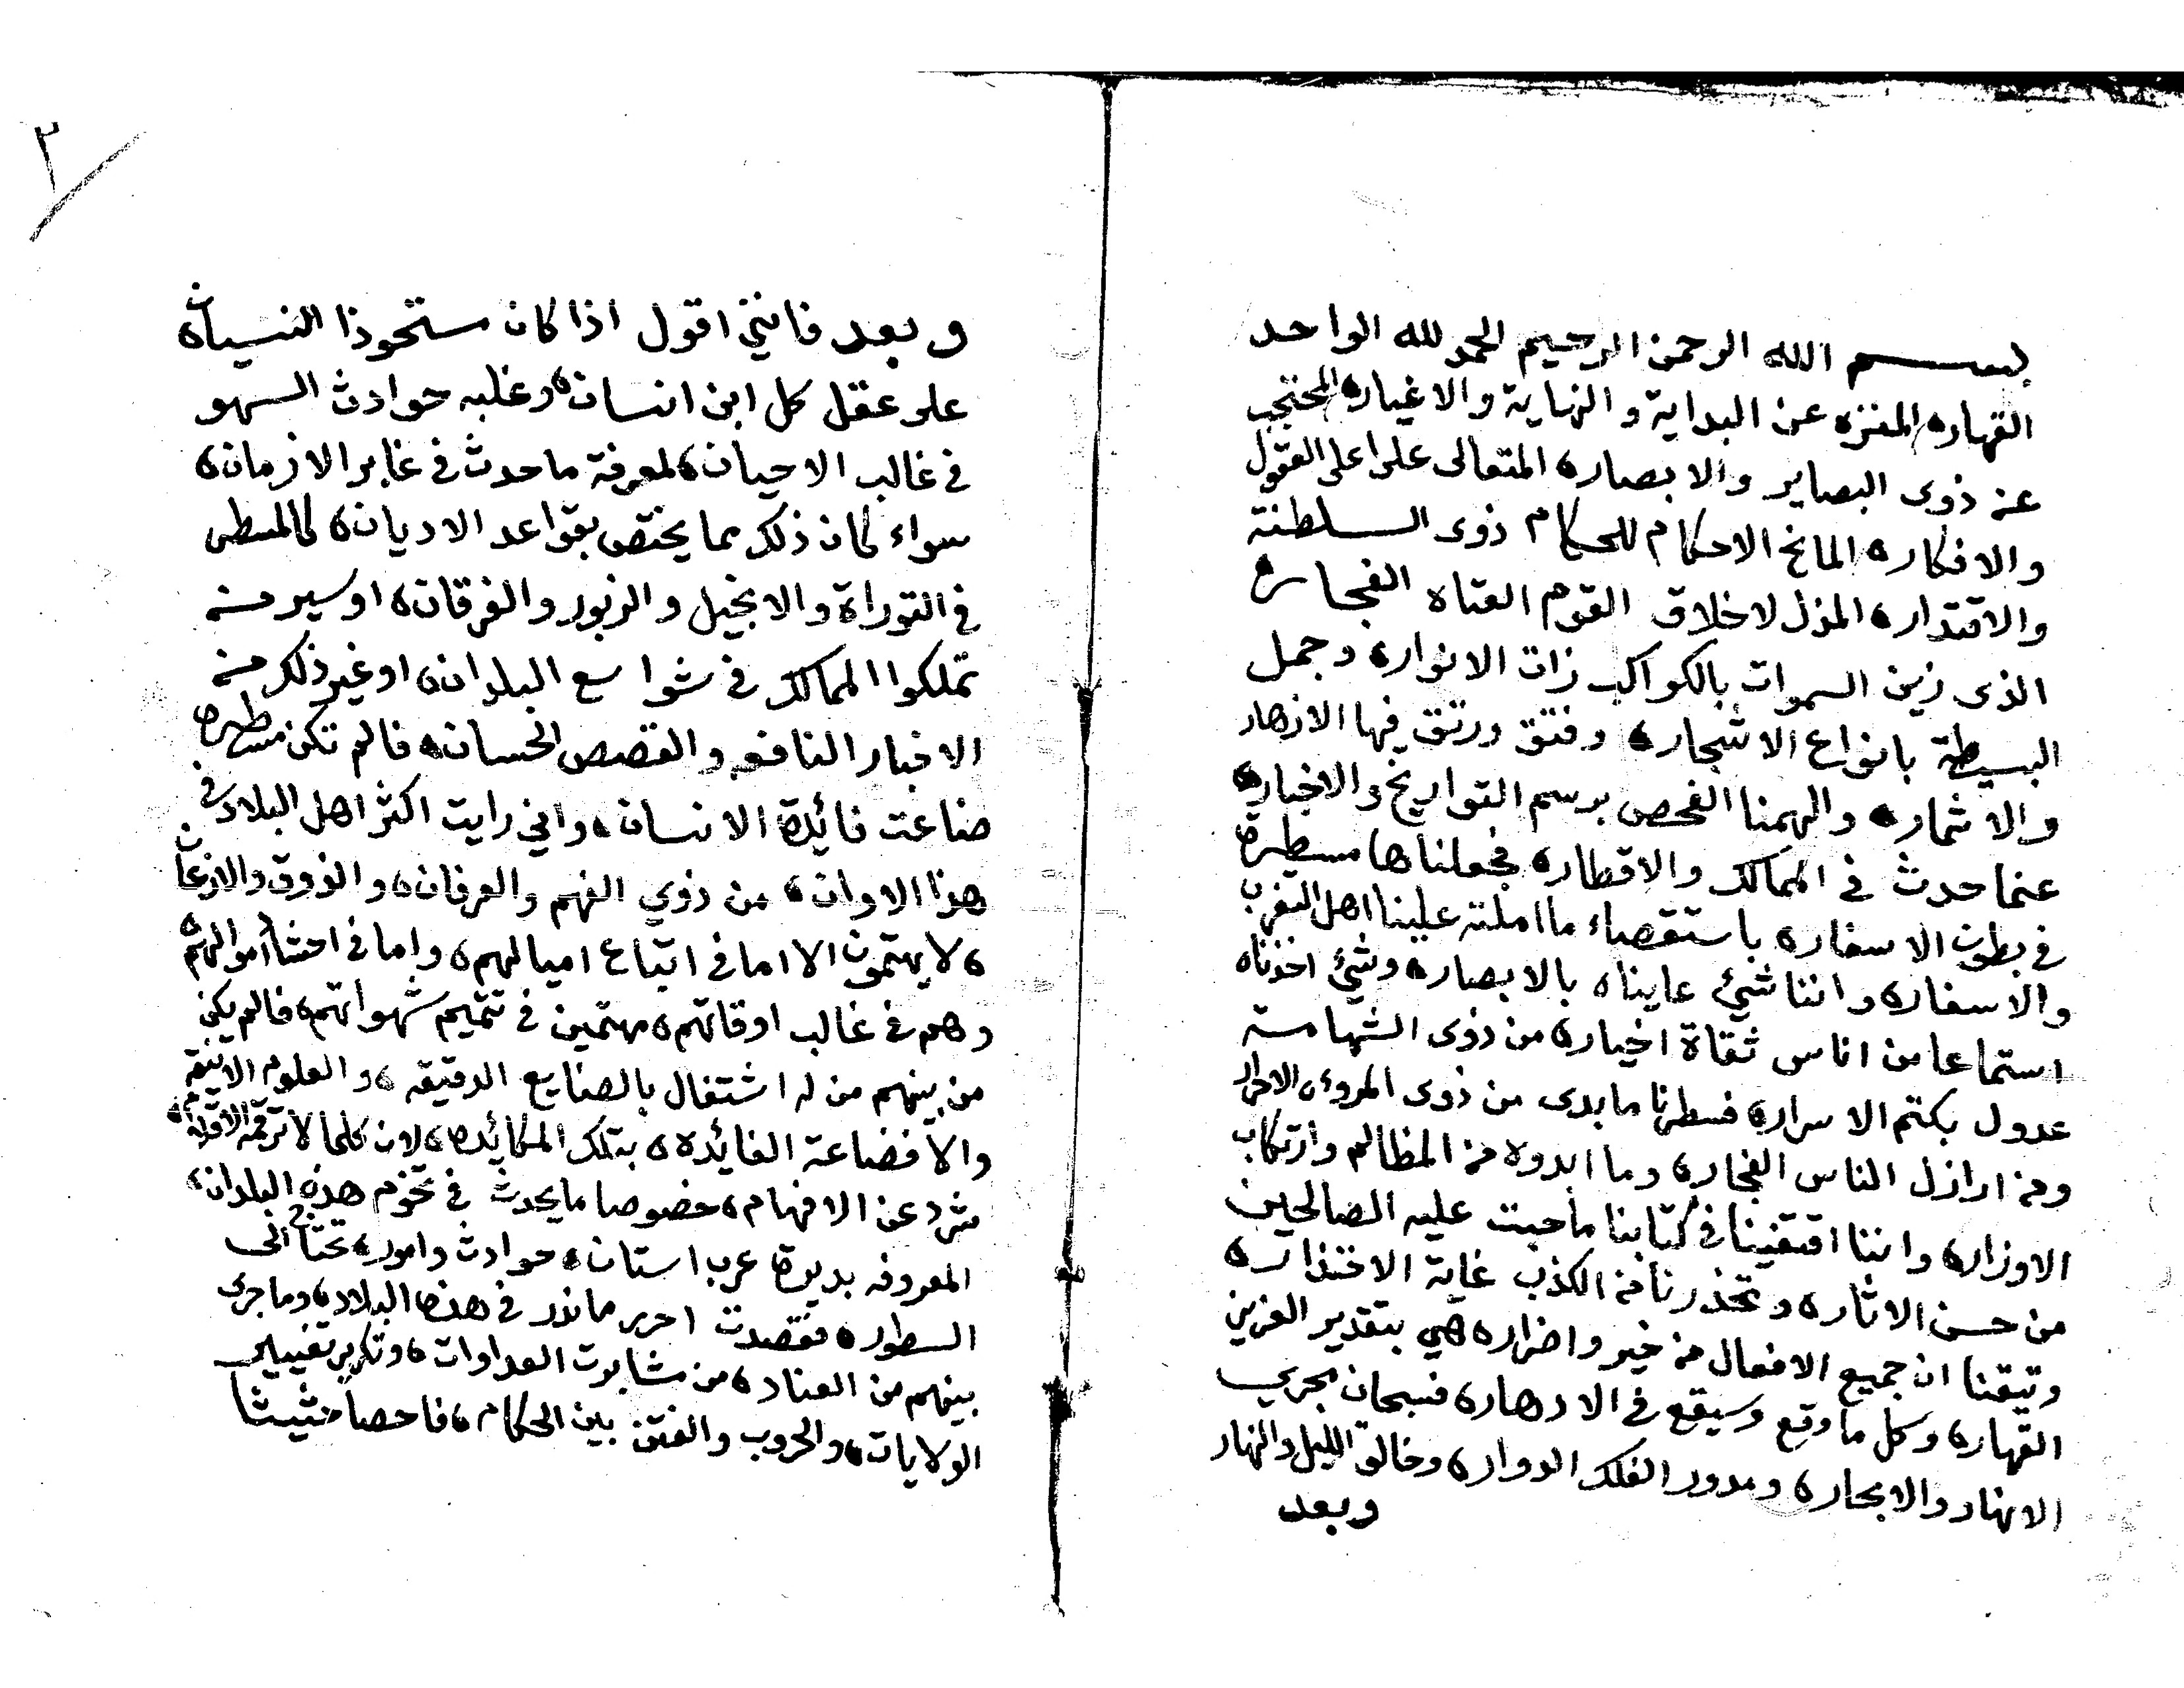 بسم الله الرحمن الرحيم الحمد لله الواحد
القهار، المنزه عن البداية والنهاية والاغيار، المحتجب
عن ذوى البصاير والابصار، المتعالى علوا على العقول
والافكار، المانح الاحكام للحكام ذوى السلطنة
والاقتدار، المذل لاخلاق القوم العتاه الفجار،
الذى زين السموات بالكواكب زات الانوار، وجمل
البسيطة بانواع الاشجار، وفتق ورتق فيها الازهار
والاثمار، والهمنا الفحص برسم التواريخ والاخبار،
عنما حدث في الممالك والاقطار، فجعلناها مسطرة
في بطون الاسفار، باستقصاء ما املته علينا اهل التغرب
والاسفار، واننا شئ عايناه بالابصار، وشئ اخذناه
استماعا من اناس ثقاة اخيار، من ذوى الشهامة
عدول بكتم الاسرار، فسطرنا ما بدى من ذوى المروء، الاحرار
ومن ارازل الناس الفجار، وما ابدوه من المظالم وارتكاب
الاوزار، واننا اقتفينا في كتابنا ماحبت عليه الصالحين
من حسن الاثار، وتحذرنا من الكذب غاية الاختذار،
وتيقنا ان جميع الافعال من خير واضرار، هي بتقدير العزيز
القهار، وكل ما وقع وسيقع في الادهار، فسبحان مجري
الانهار والابحار، ومدور الفلك الدوار، وخالق الليل والنهار
وبعد
٢
وبعد فانني اقول اذا كان ستحوذا النسيان،
على عقل كل ابن انسان، وغلبه حوادث السهو
في غالب الاحيان، لمعرفة ما حدث في غابر الازمان،
سواء كان ذلك مما يختص بقواعد الاديان، كالمسطر
في التوراة والانجيل والزبور والفرقان، او سير من
تملكوا الممالك في شواسع البلدان، او غير ذلك من
الاخبار النافعه والقصص الحسان، فالم تكن مسطرة
ضاعت فائدة الانسان، واني رايت اكثر اهل البلاد في
هذا الاوان، من ذوي الفهم والعرفان، والذوق والاذعان
، لا يهتمون الا اما في اتباع اميالهم، واما في احتشا اموالهم،
وهم في غالب اوقاتهم، مهتمين في تتميم شهواتهم، فالم يكن
من بينهم من له اشتغال بالصنايع الدقيقه، والعلوم الانيقه،
والا فضاعة الفائدة، بتلك المكائدة، لان كلما لا ترقمه الاقلام،
شرد عن الافهام، خصوصا ما يحدث في تخوم هذه البلدان،
المعروفه بديرة عرب استان، حوادث وامور، تحتاج الى
السطور، فقصدت احرر ما ندر في هذه البلاد، وما جرى
بينهم من العناد، من مشابوت العداوات، وتكرير تغييلير
الولايات، والحروب والفتن بين الحكام، فاحصا حثيثا